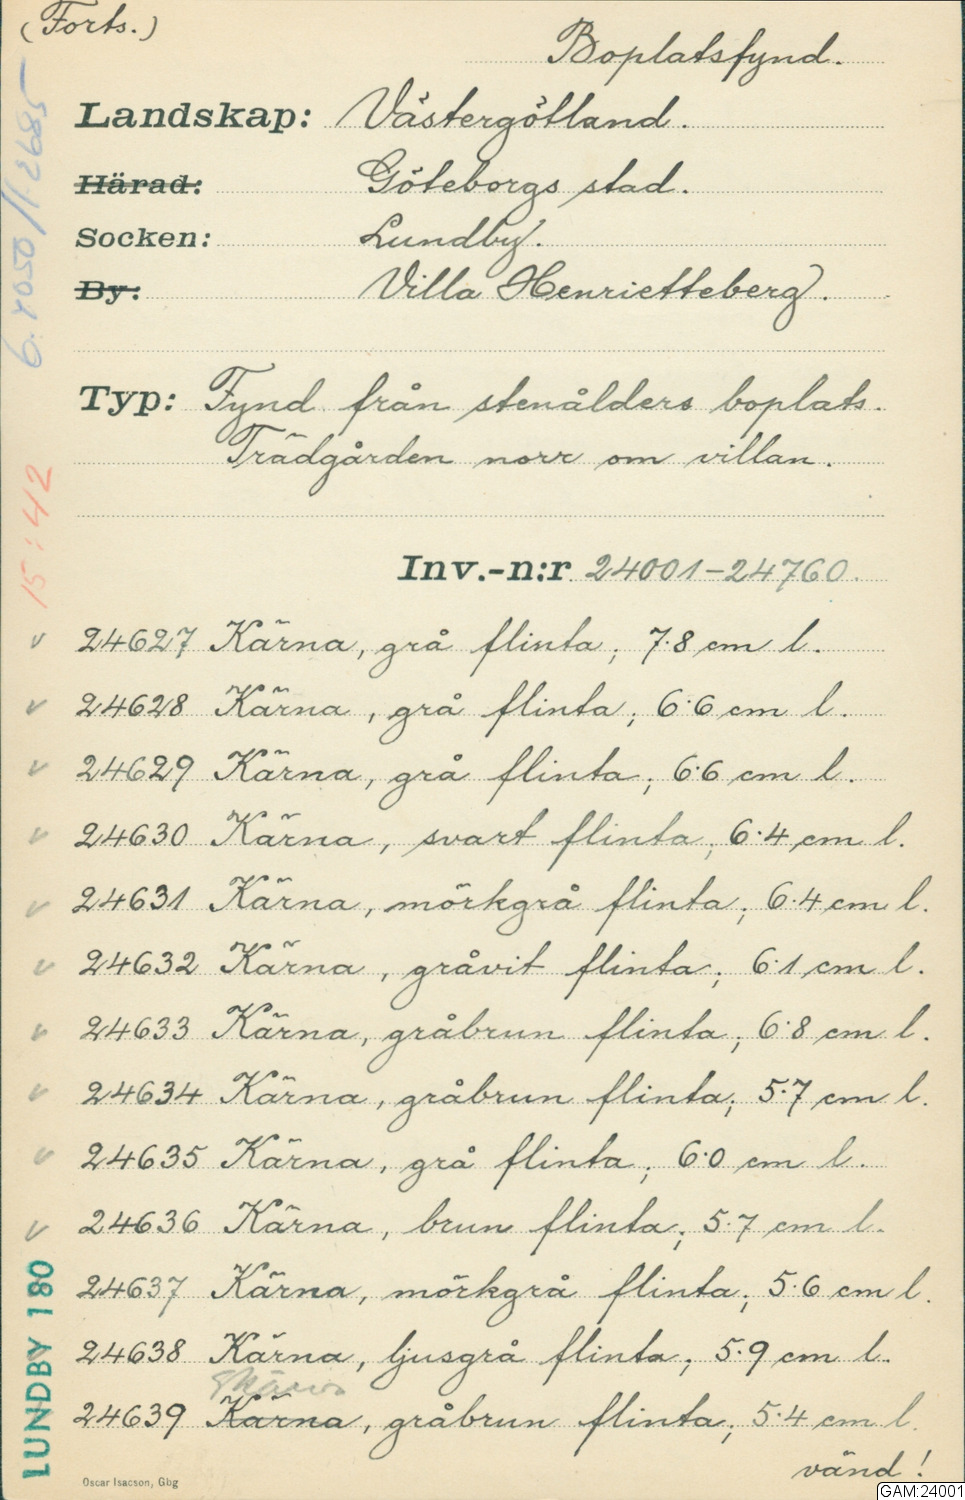 (Forts.)
Boplatsfynd.
Landskap: Västergötland.
Härad: Göteborgs stad.
Socken: Lundby.
By: Villa Henrietteberg.
Typ: Fynd från stenålders boplats.
Trädgården norr om villan.
Inv.-n:r 24001-24760.
v 24627 Kärna, grå flinta; 7.8 cm l.
v 24628 Kärna, grå flinta; 6.6 cm l.
v 24629 Kärna, grå flinta; 6.6 cm l.
v 24630 Kärna, svart flinta; 6.4 cm l.
v 24631 Kärna, mörkgrå flinta; 6.4 cm l.
v 24632 Kärna, gråvit flinta; 6.1 cm l.
v 24633 Kärna, gråbrun flinta; 6.8 cm l.
v 24634 Kärna, gråbrun flinta; 5.7 cm l.
v 24635 Kärna, grå flinta; 6.0 cm l.
v 24636 Kärna, brun flinta; 5.7 cm l.
24637 Kärna, mörkgrå flinta; 5.6 cm l.
24638 Kärna, ljusgrå flinta; 5.9 cm l.
24639 Kärna, gråbrun flinta; 5.4 cm l.
vänd!
Oscar Isacson, Gbg
15:42
LUNDBY 180
GAM:24001